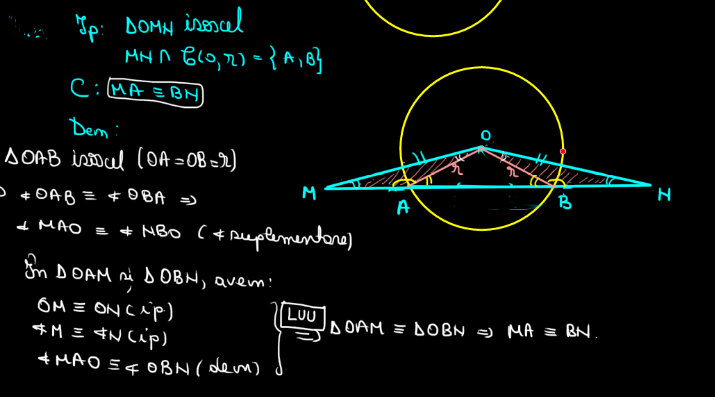 Ip: ΔOMN isoscel
MN ∩ C(O, r) = {A, B}
C: MA ≡ BN
Dem:
ΔOAB isoscel (OA = OB = r)
∢OAB ≡ ∢OBA ⇒
∢MAO ≡ ∢NBO (∢ suplementare)
În ΔOAM și ΔOBN, avem:
OM ≡ ON (ip)
∢M ≡ ∢N (ip)
∢MAO ≡ ∢OBN (dem)
LUU ⇒ ΔOAM ≡ ΔOBN ⇒ MA ≡ BN.
O
r r
M A B N